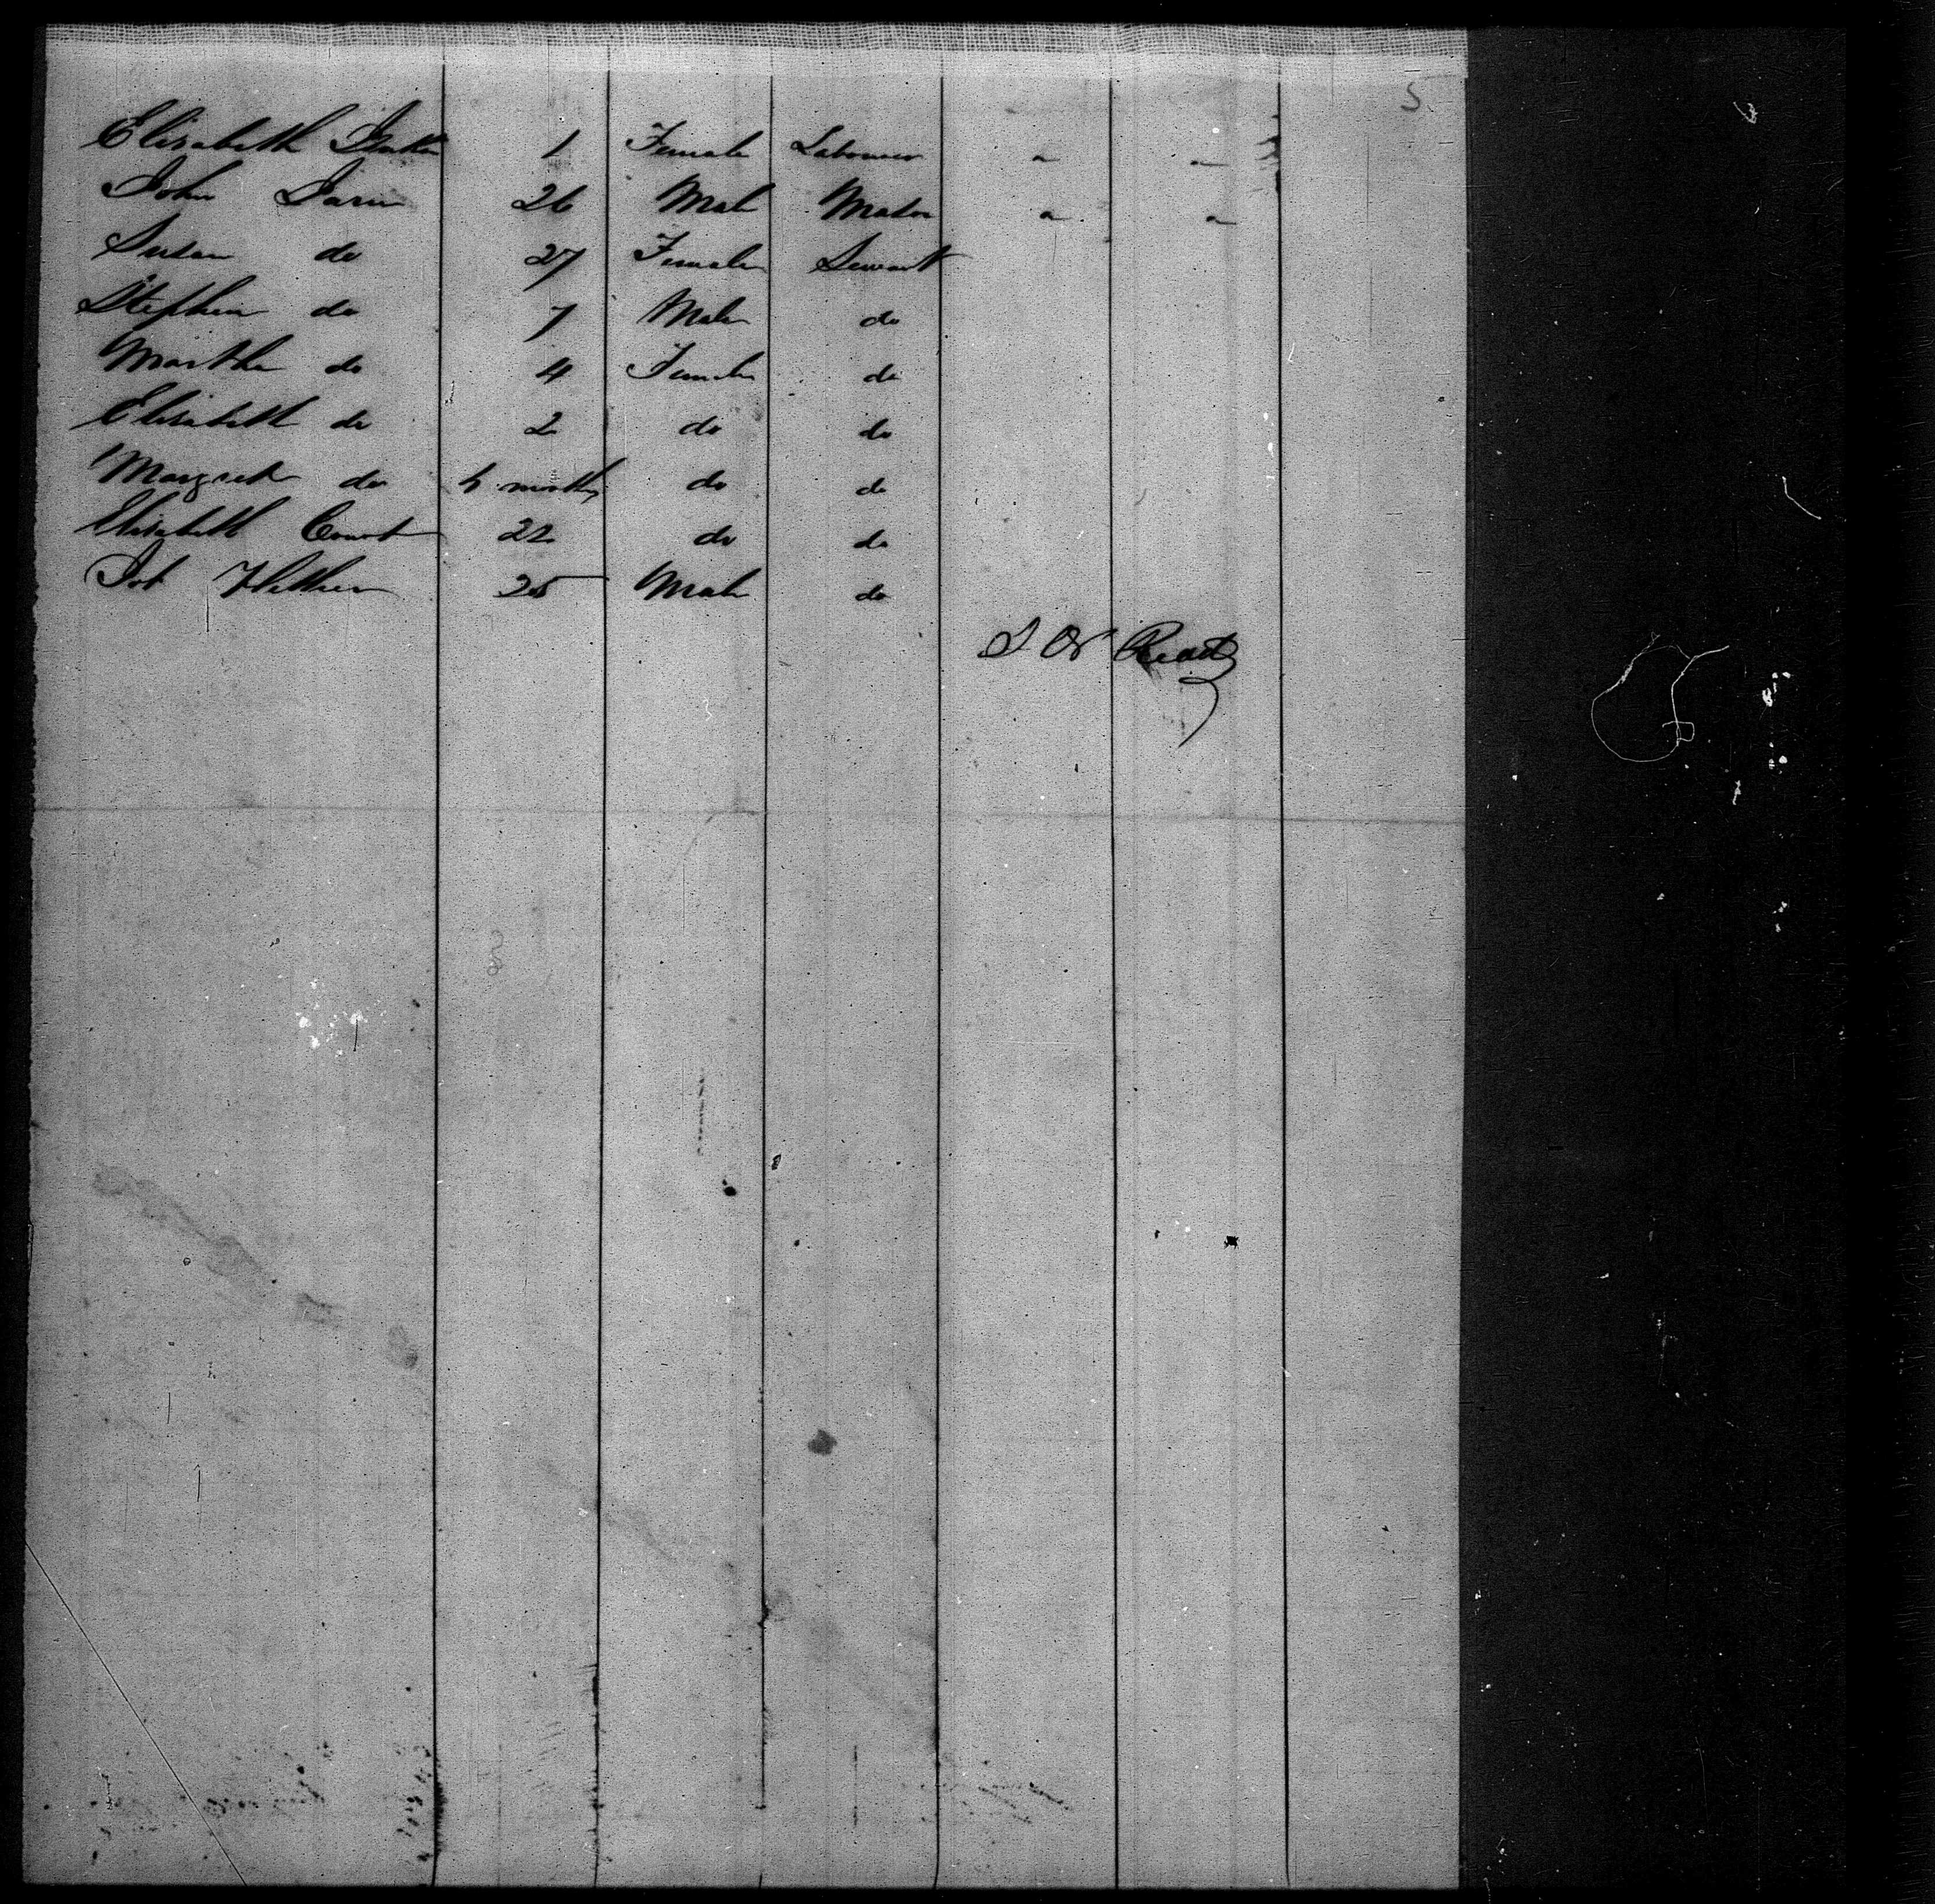 5
Elisabeth 1 Female Labourer " "
John 26 Male Mason " "
Susan do 27 Female Servant
Stephen do 7 Male do
Martha do 4 Female do
Elisabeth do 2 do do
Margret do months do do
Elisabeth Court 22 do do
25 Male do